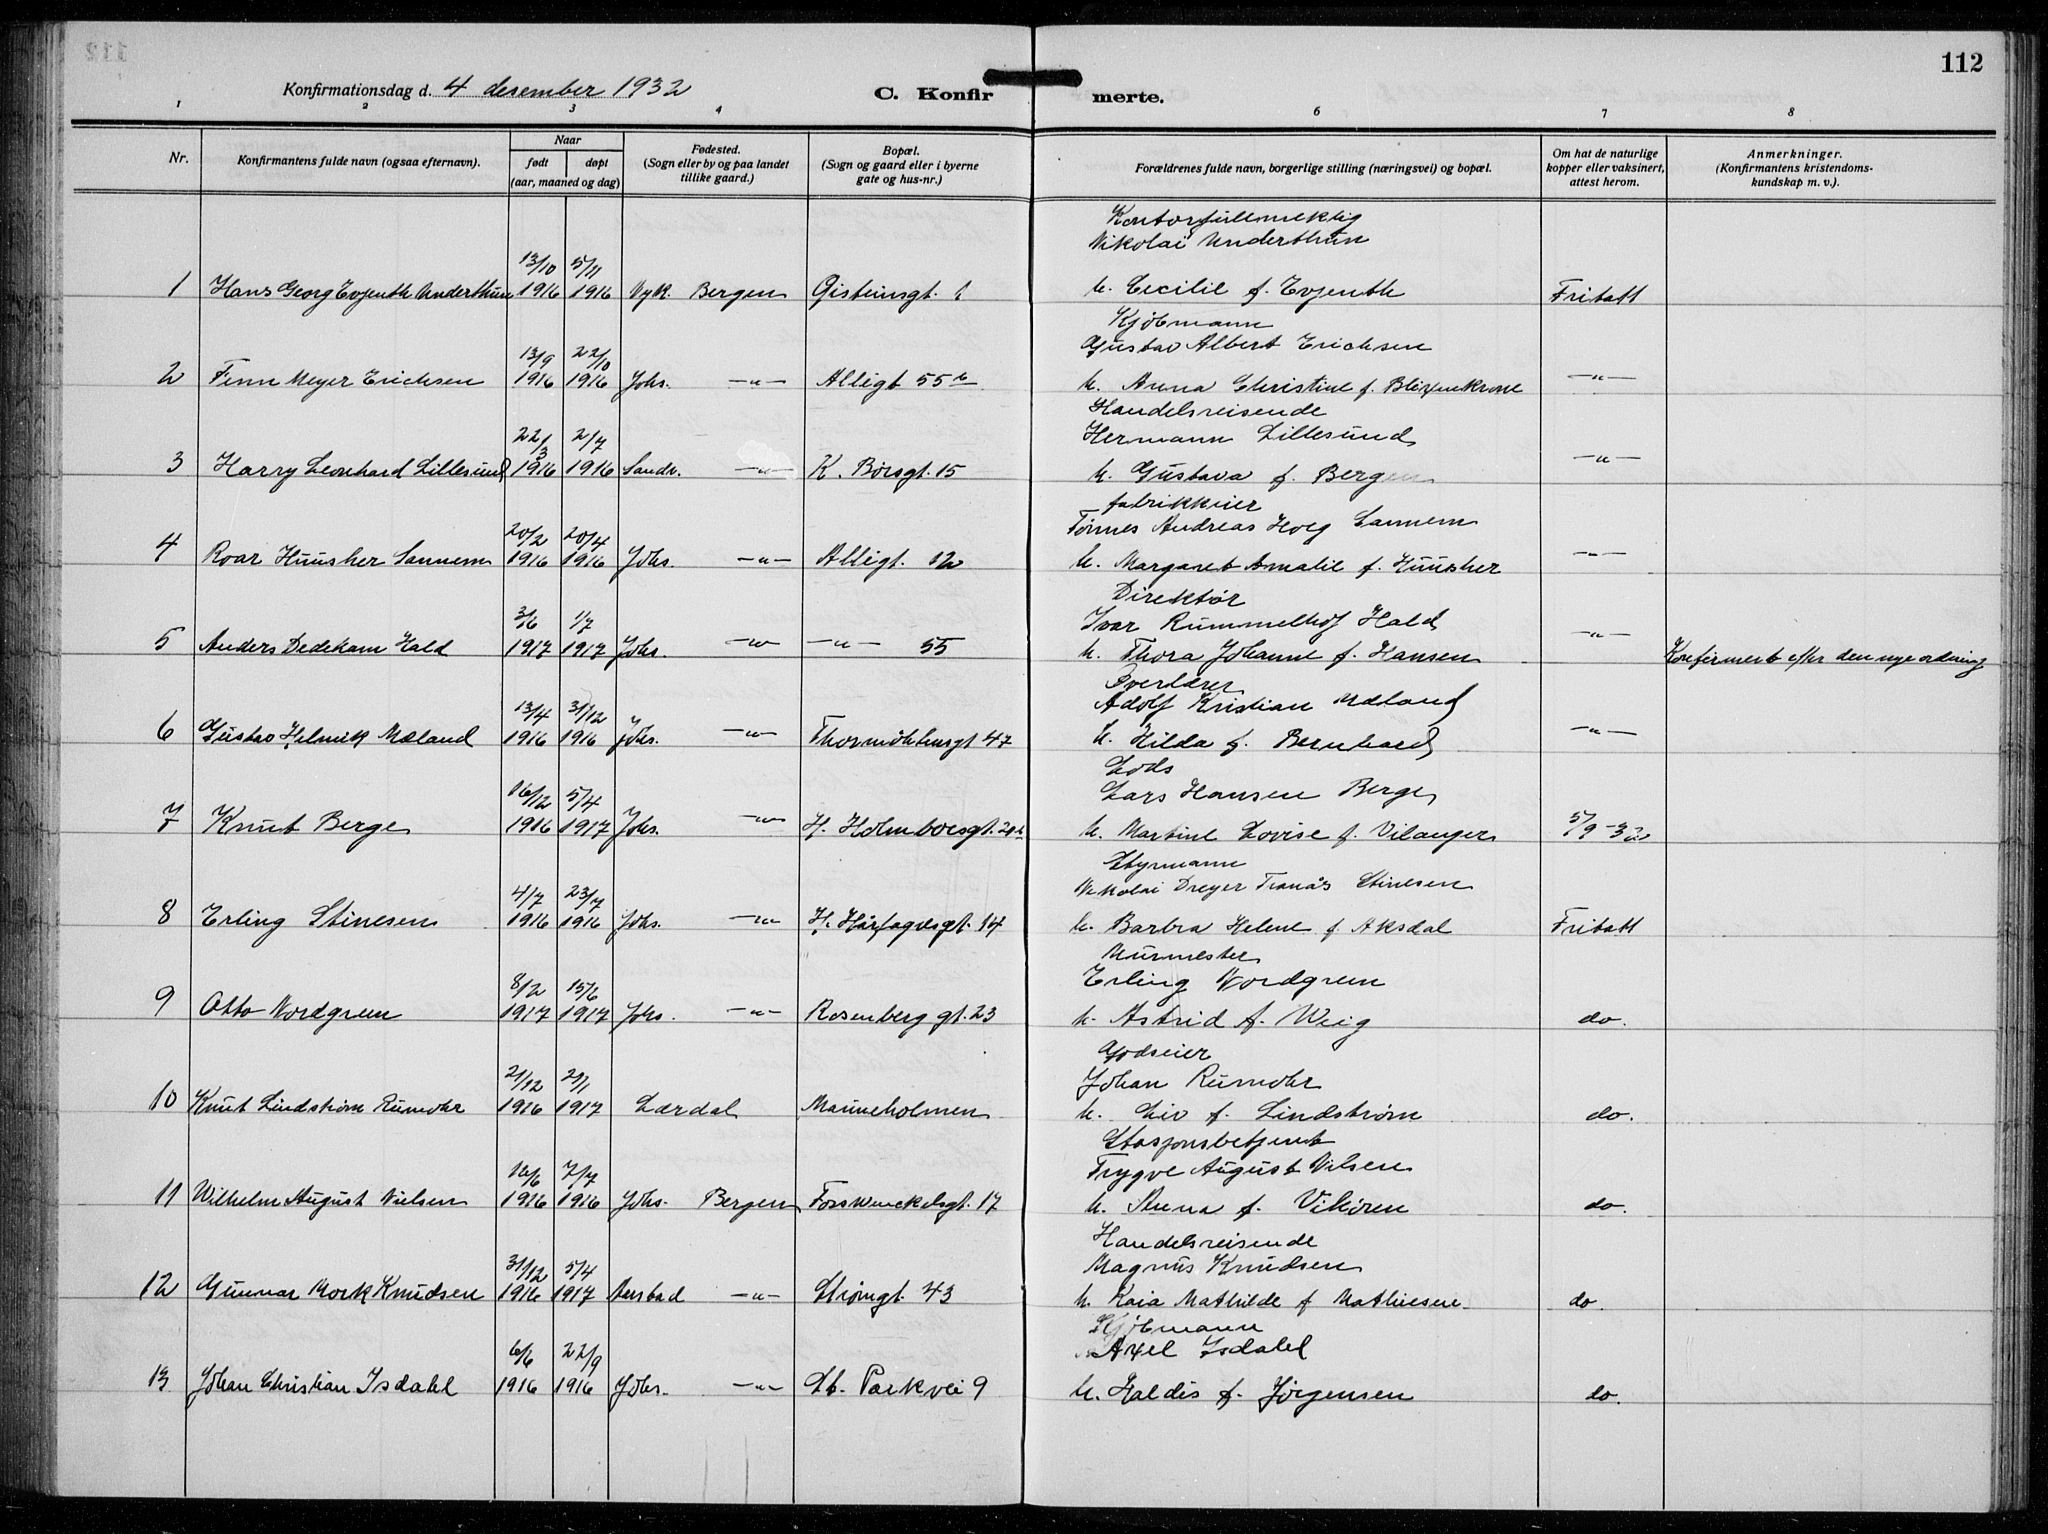 112
Konfirmationsdag d. 4 desember 1932
C. Konfirmerte.
1 2 3 4 6 7 8
Nr.
Konfirmantens fulde navn (ogsaa efternavn).
Naar
født døpt
(aar, maaned og dag)
Fødested.
(Sogn eller by og paa landet
tillike gaard.)
Bopæl.
(Sogn og gaard eller i byerne
gate og hus-nr.)
Forældrenes fulde navn, borgerlige stilling (næringsvei) og bopæl.
Om hat de naturlige
kopper eller vaksinert,
attest herom.
Anmerkninger.
(Konfirmantens kristendoms-
kundskap m. v.).
Kontorfullmektig
Nikolai Underthun
13/10 5/11
1 Hans Georg Evjenth Underthun 1916 1916 Nyk. Bergen Gisteinsgt. 1 h. Cecilie f. Evjenth Fritatt
Kjøbmann
Gustav Albert Erichsen
13/9 22/10
2 Finn Meyer Erichsen 1916 1916 Johs. —"— Allégt 55 b h. Anna Christine f. Blixenkrone —"—
Handelsreisende
Hermann Lillesund
22/3 2/7
3 Harry Leonhard Lillesund 1916 1916 Sandv. —"— K. Børsgt. 15 h. Gustava f. Bergen —"—
fabrikkeier
Tønnes Andreas Hoeg Sannem
20/2 20/4
4 Roar Huusher Sannem 1916 1916 Johs. —"— Allégt. 12 h. Margaret Amalie f. Huusher —"—
Direktør
Ivar Rummelhof Hald
3/6 1/7
5 Anders Dedekam Hald 1917 1917 Johs. —"— —"— 55 h. Thora Johanne f. Hansen —"— Konfirmert efter den nye ordning
Overlærer
Adolf Kristian Mæland
13/4 31/12
6 Gustav Helmik Mæland 1916 1916 Johs. —"— Thormøhlensgt 47 h. Hilda f. Bernhard —"—
Lods
Lars Hansen Berge
16/12 5/4
7 Knut Berge 1916 1917 Johs. —"— H. Holmboesgt. 20 b h. Martine Lovise f. Vilanger 5/9-32
Styrmann
Nikolai Dreyer Tranås Stinesen
4/7 23/7
8 Erling Stinesen 1916 1916 Johs. —"— H. Hårfagresgt. 14 h. Barbra Helene f. Aksdal Fritatt
Murmester
Erling Nordgreen
8/2 15/6
9 Otto Nordgreen 1917 1917 Johs. —"— Rosenberg gt. 23 h. Astrid f. Wiig do.
Godseier
Johan Rumohr
21/12 21/1
10 Knut Lindstrøm Rumohr 1916 1917 Lærdal Marineholmen h. Liv f. Lindstrøm do.
Stasjonsbetjent
Trygve August Nilsen
16/6 7/7
11 Wilhelm August Nielsen 1916 1916 Johs. Bergen Fosswinckelsgt. 17 h. Anna f. Vikøren do.
Handelsreisende
Magnus Knudsen
31/12 5/4
12 Gunnar Mork Knudsen 1916 1917 Aarstad —"— Strømgt. 43 h. Kaia Mathilde f Mathiesen do.
Kjøbmann
Axel Isdahl
6/6 22/9
13 Johan Christian Isdahl 1916 1916 Johs. —"— St. Parkvei 9 h. Haldis f. Jørgensen do.